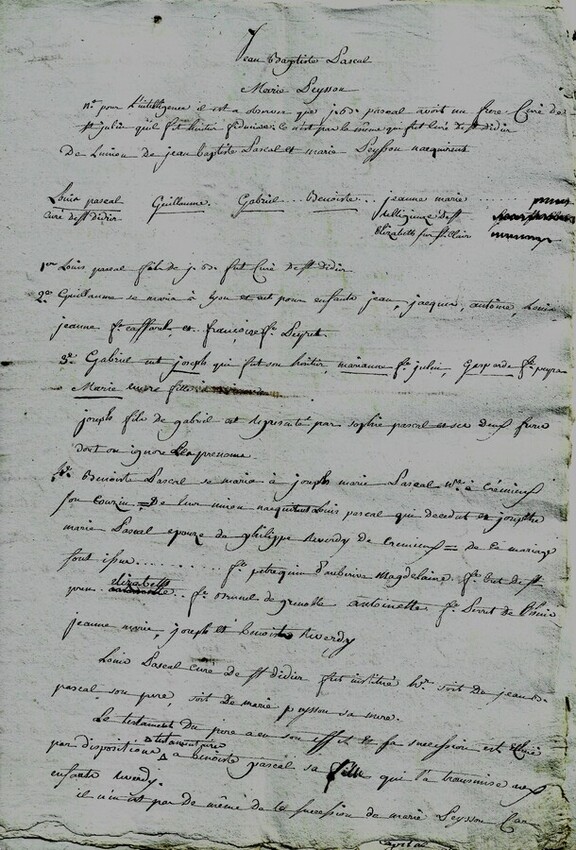 Jean Baptiste Pascal
Marie Seyssou
n.a pour l'intelligence il est a observer que j.B. pascal avoit un frere Curé de
st julien qu'il fit heritier fiduciaire; ce n'est pas le meme qui fut Curé de st didier
De l'union de jean baptiste Pascal et marie Seyssou naquirent
Louis pascal Guillaume. Gabriel. Benoiste .. jeanne marie
Curé de st didier. Relligieuse de ste
Elizabeth sur st Clair
1er Louis pascal fils de j. B. fut Curé de st didier.
2e. Guillaume se maria à lyon et eut pour enfants jean, jacques, antoine, Louis
jeanne fe. et françoise fe. Peyret.
3e. Gabriel eut joseph qui fut son heritier, marianne fe. julin, Gasparde fe.
Marie encore fille
joseph fils de gabriel est represénté par sophie pascal et ses deux freres
dont on ignore les prenoms
4e. Benoiste Pascal se maria à joseph marie Pascal Nre. à Crémieux
son Couzin = De leur union naquirent Louis pascal qui deceda et josephte
marie Pascal epouze de philippe Alverdy de Cremieux = de Ce mariage
sont issus .......... fe. petrequin d'auberive Magdelaine, fe. de st
elizabeth .. fe. de grenoble antoinette, fe. Serret de
jeanne marie, joseph et Benoiste Alverdy
Louis Pascal curé De st didier fut institué her. soit du jean B.
pascal son pere, soit De marie Seyssou sa mere.
Le testament Du pere a eu son effet & sa succession est
par disposition testamentaire a benoiste pascal sa fille qui l'a transmise aux
enfants Alverdy.
il n'en est pas de même de la succession de marie Seyssou Car